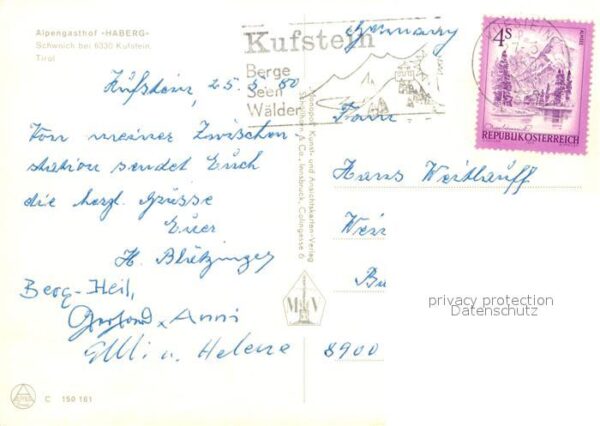 Alpengasthof -HABERG-
Schwoich bei 6330 Kufstein
Tirol
Kufstein, 25.5.80
Von meiner Zwischen-
station sendet Euch
die herzl. Grüsse
Euer
H. Blützinger
Berg-Heil,
Gerhard & Anni
Elli u. Helene
C 159 161
Monopol Kunst- und Ansichtskarten-Verlag
& Co., Innsbruck, Colingasse 6
M V
Kufstein
Berge
Seen
Wälder
4S
REPUBLIK ÖSTERREICH
Germany
Fam
Hans Weitlauff
Wei
Bu
8900
privacy protection
Datenschutz